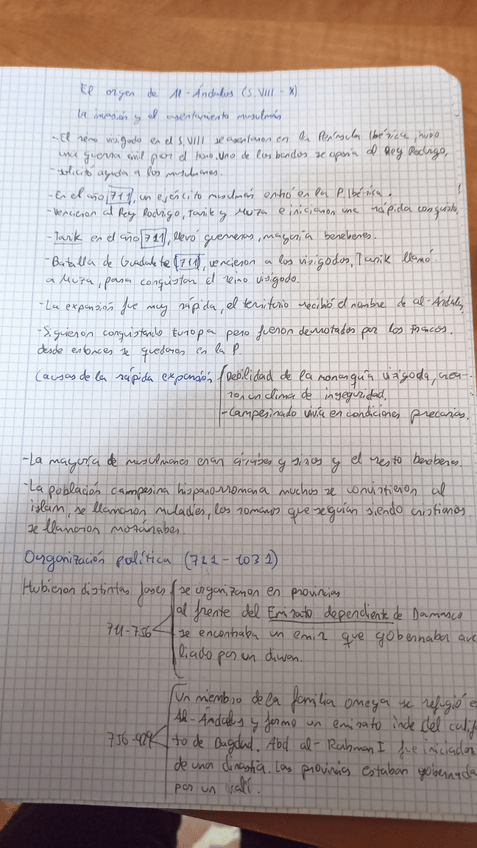 El origen de Al-Ándalus (S.VIII-X)
La invasión y el asentamiento musulmán
-El reino visigodo en el S.VIII se asentaron en la Península Ibérica, hubo
una guerra civil por el trono. Uno de los bandos se oponía al Rey Rodrigo,
-solicitó ayuda a los musulmanes.
-En el año 711, un ejército musulmán entró en la P. Ibérica.
-Vencieron al Rey Rodrigo, Tarik y Muza e iniciaron una rápida conquista,
-Tarik en el año 711, llevó guerreros, mayoría bereberes.
-Batalla de Guadalete 711, vencieron a los visigodos, Tarik llamó
a Muza, para conquistar el reino visigodo.
-La expansión fue muy rápida, el territorio recibió el nombre de al-Ándalus
-Siguieron conquistando Europa pero fueron derrotados por los francos.
desde entonces se quedaron en la P.
Causas de la rápida expansión Debilidad de la monarquía visigoda, crea-
ron un clima de inseguridad.
-Campesinado vivía en condiciones precarias.
-La mayoría de musulmanes eran árabes y sirios y el resto bereberes.
-La población campesina hispanorromana muchos se convirtieron al
islam, se llamaron muladíes, los romanos que seguían siendo cristianos
se llamaron mozárabes.
Organización política (711-1031)
Hubieron distintas fases se organizaron en provincias
al frente del Emirato dependiente de Damasco
711-756 se encontraba un emir que gobernaba aux
liado por un diwan.
Un miembro de la familia omeya se refugió e
Al-Ándalus y formó un emirato inde del califa
756-929 to de Bagdad. Abd al-Rahman I fue iniciador
de una dinastía. Las provincias estaban gobernada
por un valí.